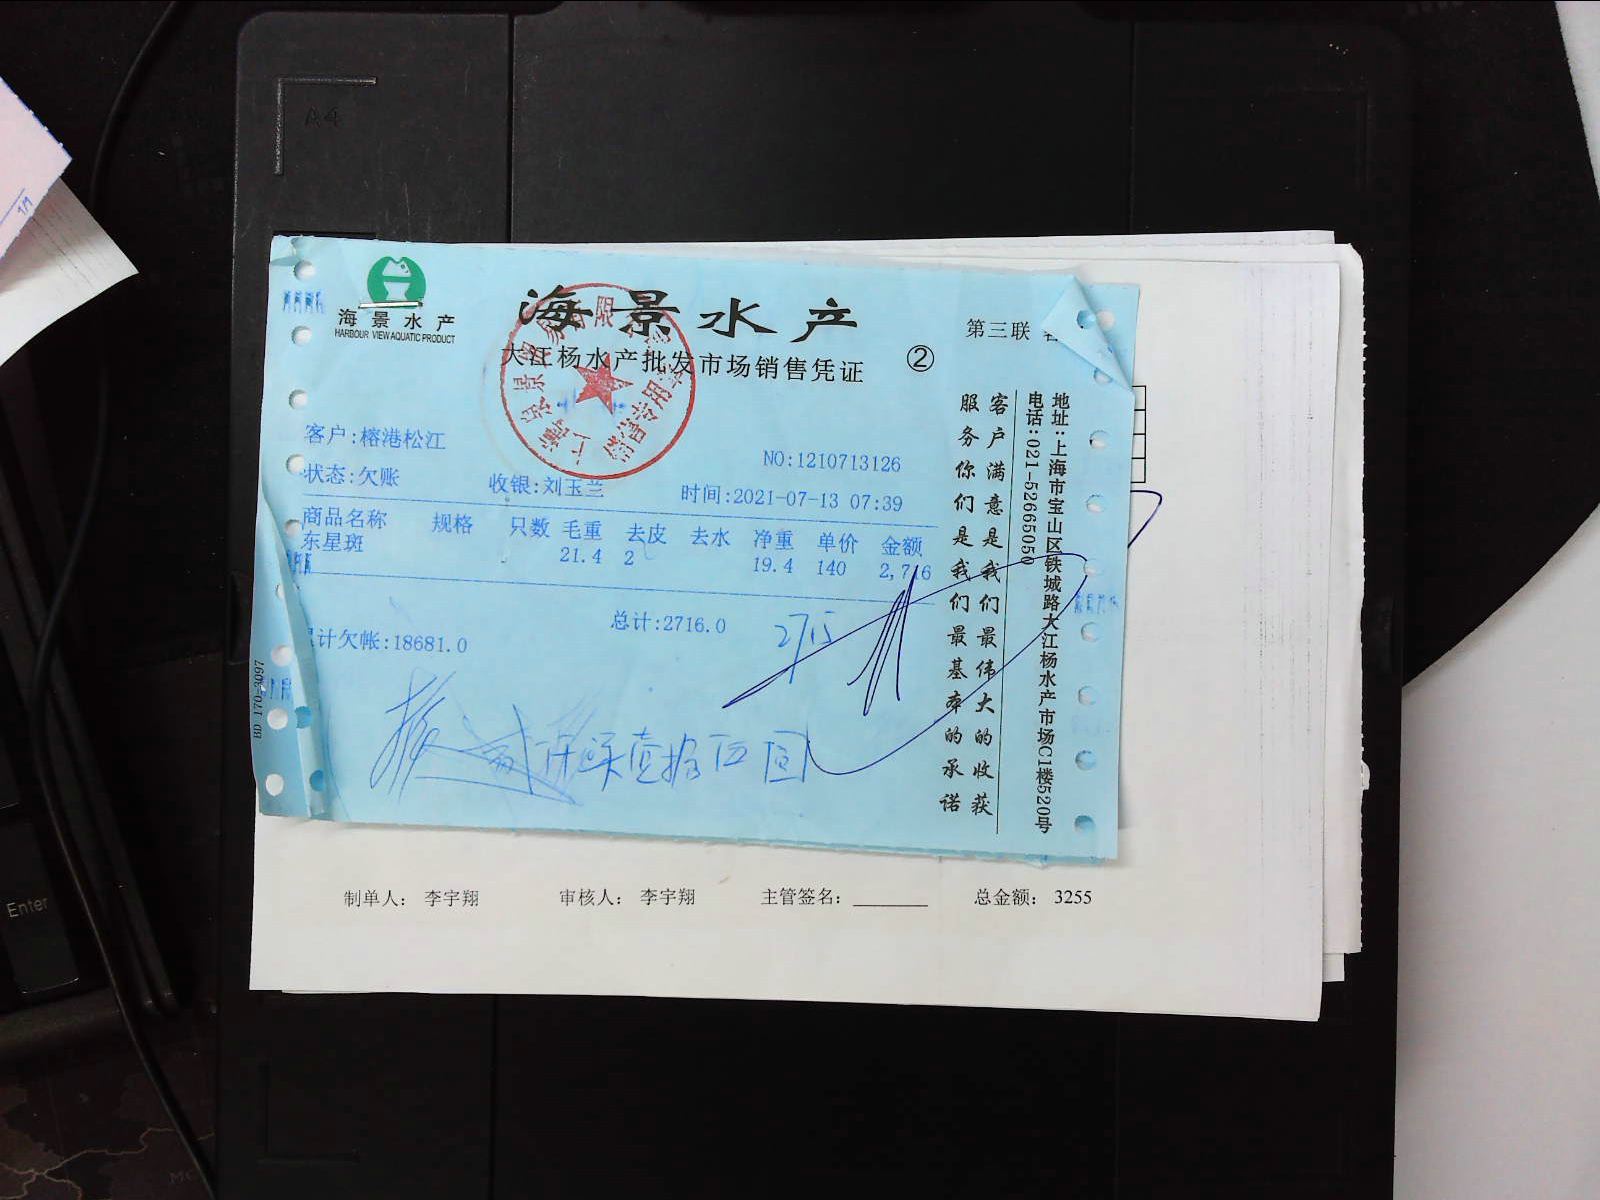 A4
海景水产
HARBOUR VIEW AQUATIC PRODUCT
海景水产
大江杨水产批发市场销售凭证 ②
第三联
客户:榕港松江
NO:1210713126
状态:欠账 收银:刘玉兰 时间:2021-07-13 07:39
商品名称 规格 只数 毛重 去皮 去水 净重 单价 金额
东星斑 21.4 2 19.4 140 2,716
总计:2716.0
计欠帐:18681.0
2715
客户满意是我们最伟大的收获
服务你们是我们最基本的承诺
地址:上海市宝山区铁城路大江杨水产市场C1楼520号
电话:021-52665050
制单人: 李宇翔 审核人: 李宇翔 主管签名: 总金额: 3255
Enter